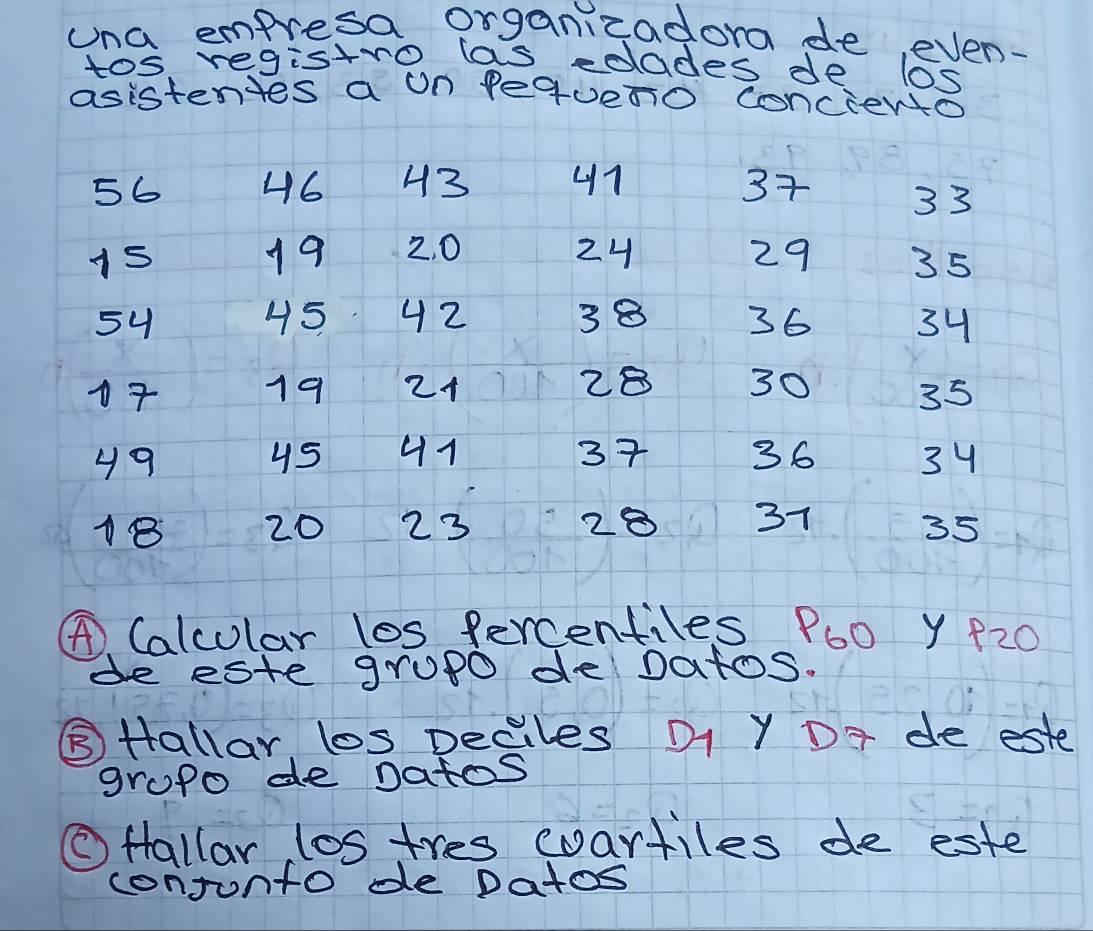 una empresa organizadora de even-
tos registro las edades de los
asistentes a un pequeño concierto
56 46 43 41 37 33
15 19 20 24 29 35
54 45 42 38 36 34
17 19 21 28 30 35
49 45 41 37 36 34
18 20 23 28 31 35
Ⓐ Calcular los percentiles P60 y P20
de este grupo de Datos.
Ⓑ Hallar los Deciles D1 y D7 de este
grupo de Datos
Ⓒ Hallar los tres cuartiles de este
conjunto de Datos